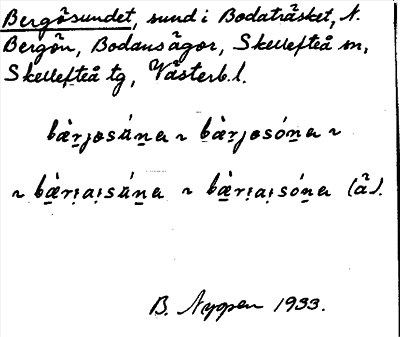 Bergösundet, sund i Bodaträsket, N.
Bergön, Bodans ägor, Skellefteå sn,
Skellefteå tg, Västerb. l.
bæ̀rjøsúna ~ bæ̀rjøsóna ~
~ bæ̀riaisúna ~ bæ̀riaisóna (ä).
B. Nyopen 1933.